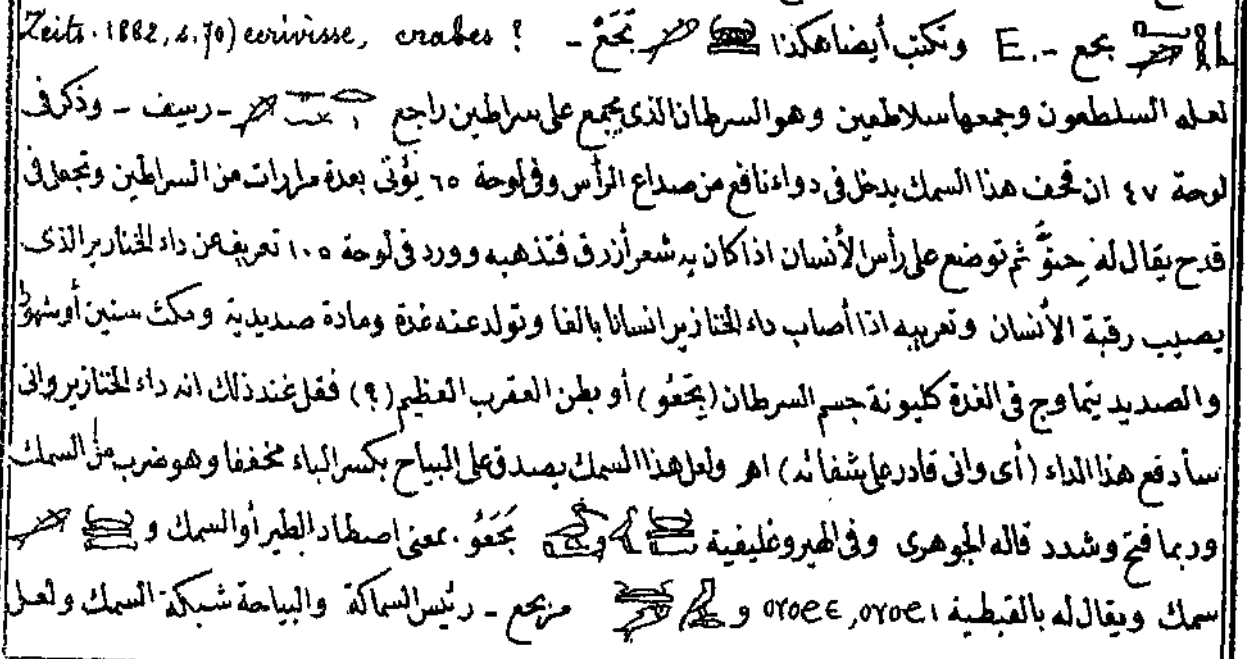 Zeits. 1882, s. 70) ecrivisse, crabes ? بحع -. E وتكتب أيضا هكذا بَحَعْ -
لعله السلطعون وجمعها سلاطعين وهو السرطان الذى يجمع على سراطين راجع - رسيف - وذكر فى
لوحة ٤٧ ان قحف هذا السمك يدخل فى دواء نافع من صداع الرأس وفى لوحة ٦٥ يؤتى بعدة مرارات من السراطين وتجعل فى
قدح يقال له حِنوّ ثم توضع على رأس الأنسان اذا كان به شعر أزرق فتذهبه وورد فى لوحة ١٠٥ تعريف عن داء الخنازير الذى
يصيب رقبة الأنسان وتعريبه اذا أصاب داء الخنازير انسانا بالغا وتولد عنه غدة ومادة صديدية ومكث سنين أو شهورا
والصديد يتماوج فى الغدة كليونة جسم السرطان (بِحَعُو) أو بطن العقرب العظيم (؟) فقل عند ذلك انه داء الخنازير وانى
سأدفع هذا الداء (أى وانى قادر على شفائه) اهـ ولعل هذا السمك يصدق على البياح بكسر الباء مخففا وهو ضرب من السمك
وربما فتح وشدد قاله الجوهرى وفى الهيروغليفية بَحَعُو. بمعنى اصطاد الطير أو السمك و
سمك ويقال له بالقبطية ⲟⲩⲟϩⲉ, ⲟⲩⲟϩⲓ و مر بحع - رئيس السماكة والبياحة شبكة السمك ولعل